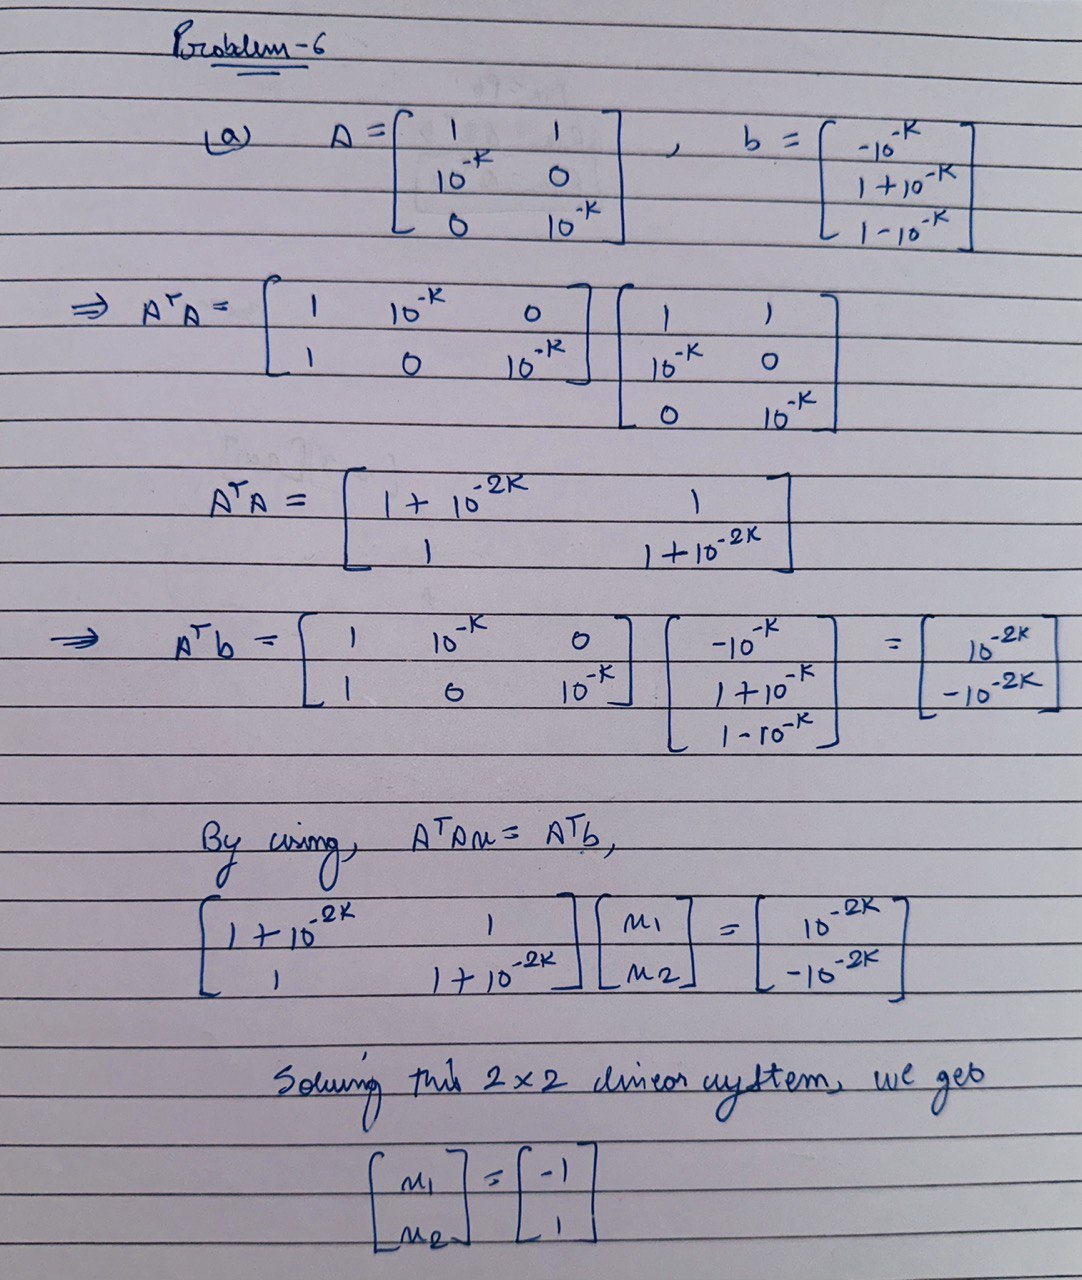 Problem-6
(a) A = [1 1; 10^-K 0; 0 10^-K], b = [-10^-K; 1+10^-K; 1-10^-K]
⇒ A^T A = [1 10^-K 0; 1 0 10^-K] [1 1; 10^-K 0; 0 10^-K]
A^T A = [1+10^-2K 1; 1 1+10^-2K]
⇒ A^T b = [1 10^-K 0; 1 0 10^-K] [-10^-K; 1+10^-K; 1-10^-K] = [10^-2K; -10^-2K]
By using, A^T A x = A^T b,
[1+10^-2K 1; 1 1+10^-2K] [x1; x2] = [10^-2K; -10^-2K]
Solving this 2x2 linear system, we get
[x1; x2] = [-1; 1]